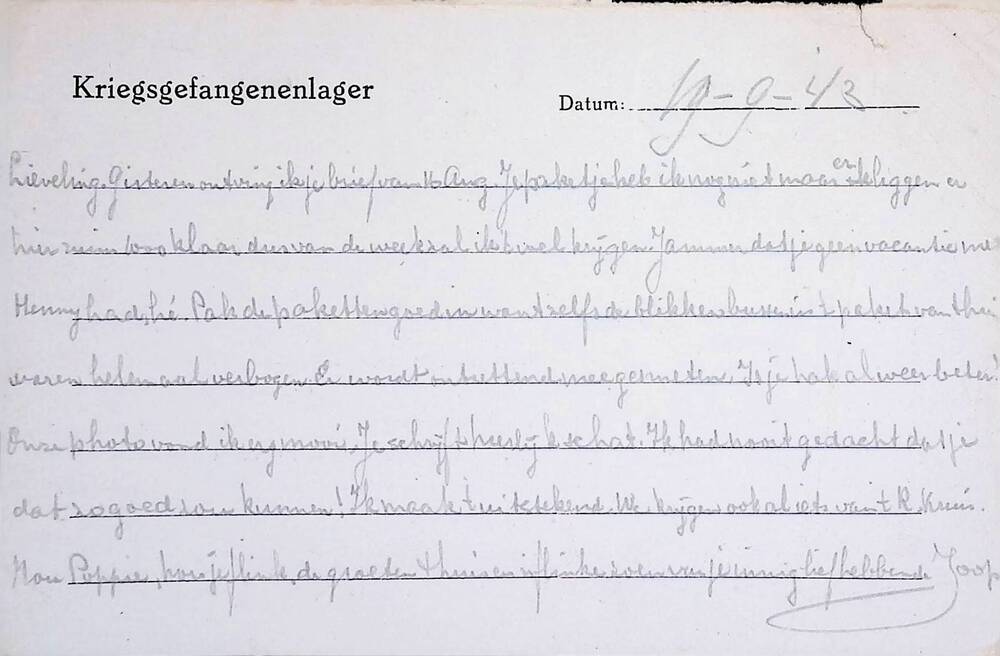 Kriegsgefangenenlager
Datum: 19-9-43
Lieveling. Gisteren ontving ik je brief van 16 Aug. Je paketje heb ik nog niet maar er leggen er
hier ruim klaar dus van de week zal ik 't wel krijgen. Jammer dat je geen vacantie met
Henny had, hé. Pak de paketten goed in want zelfs de blikken bussen in 't paket van thuis
waren helemaal verbogen. Er wordt ontzettend mee gesmeten. Is je hak al weer beter?
Onze photo vond ik erg mooi. Je schrijft heerlijk schat. Ik had nooit gedacht dat je
dat zo goed zou kunnen! Ik maak 't uitstekend. We krijgen ook al iets van 't R. Kruis.
Nou Poppie, hou je flink, de groeten thuis en 'n flinke zoen van je innig liefhebbende Joop